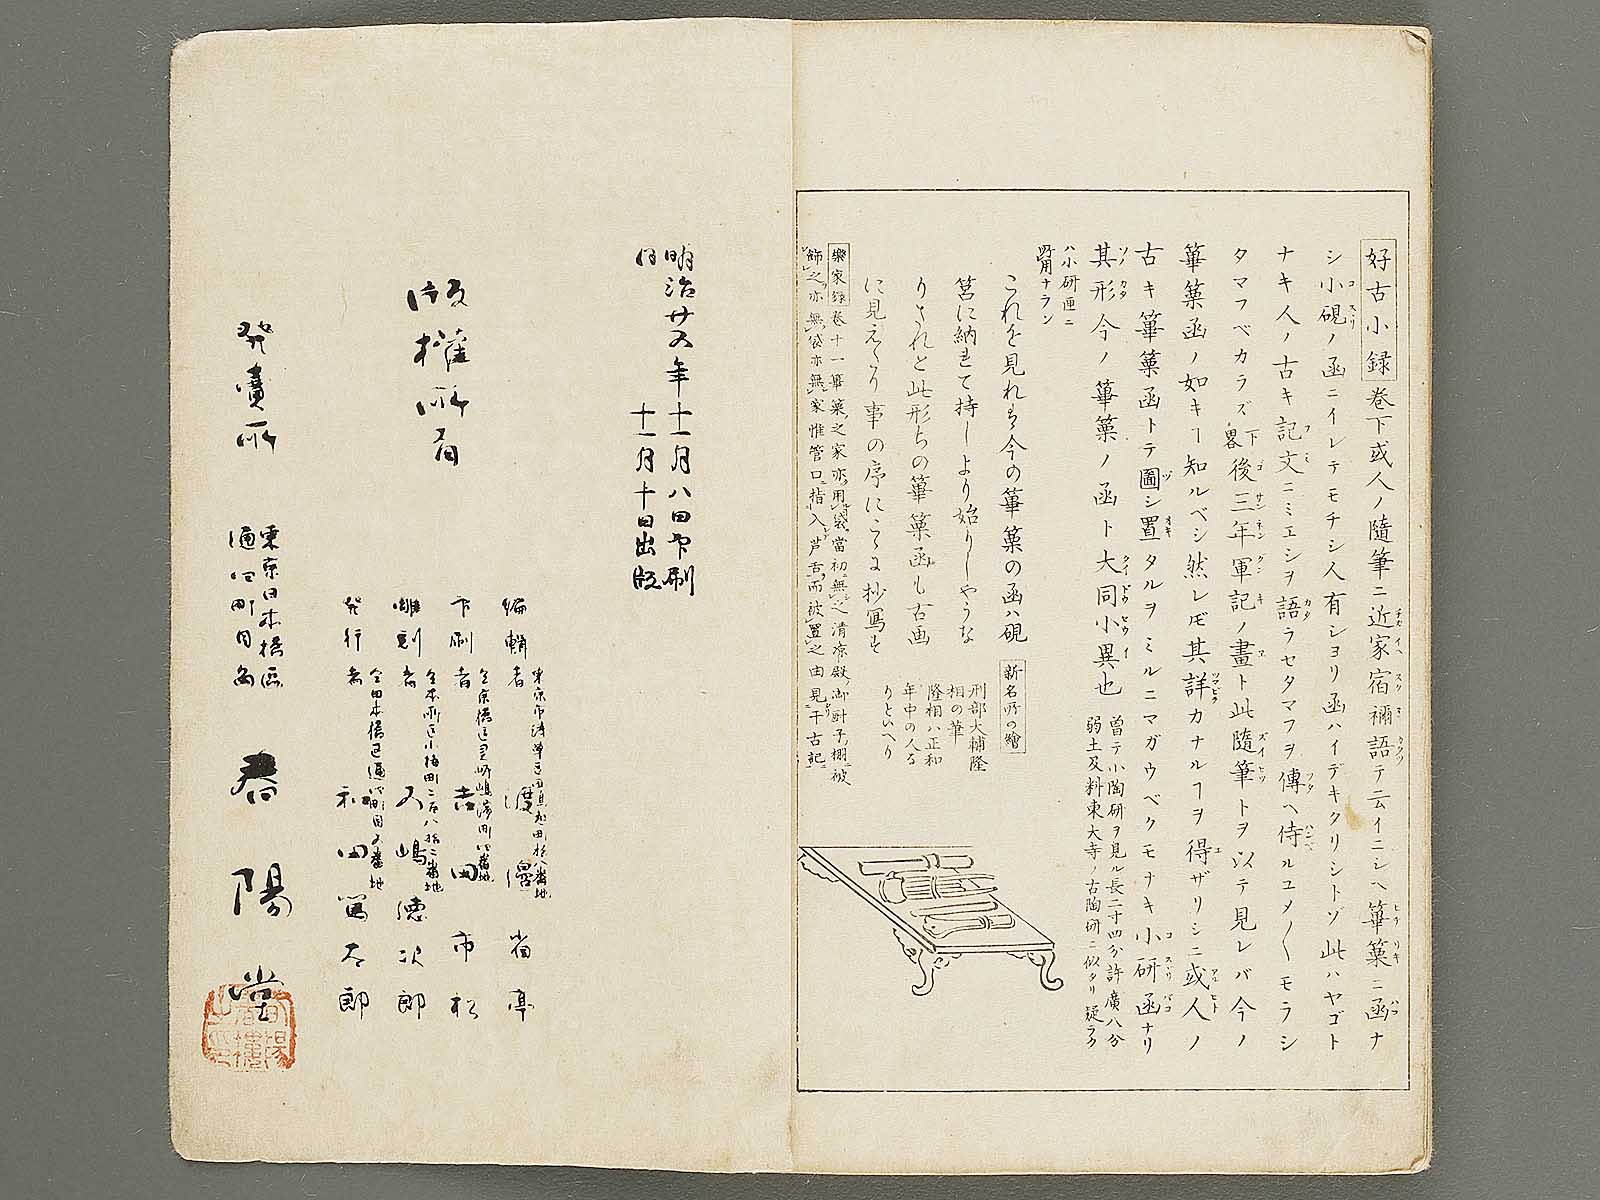 好古小録 巻下或人ノ隨筆ニ近家宿禰語テ云イニシヘ篳篥ニ函ナ
シ小硯ノ函ニイレテモチシ人有ショリ函ハイデキタリシトゾ此ハヤゴト
ナキ人ノ古キ記文ニミエシヲ語ラセタマフヲ傳ヘ侍ルユメ〱モラシ
タマフベカラズ下畧後三年軍記ノ畫ト此隨筆トヲ以テ見レバ今ノ
篳篥函ノ如キヿ知ルベシ然レ𪜈其詳カナルヿヲ得ザリシニ或人ノ
古キ篳篥函トテ圖シ置タルヲミルニマガウベクモナキ小研函ナリ
其形今ノ篳篥ノ函ト大同小異也 曽テ小陶研ヲ見ル長二寸四分許廣八分
弱土及料東大寺ノ古陶研ニ似タリ疑ラク
ハ小研匣ニ
用ナラン
これを見れは今の篳篥の函ハ硯
筥に納れて持しより始りしやうな
りされと此形ちの篳篥函も古画
に見えたり事の序にこゝに抄寫す
新名所の繪
刑部大輔隆
相の筆
隆相ハ正和
年中の人な
りといへり
樂家録巻十一篳篥之家亦用袋當初無之清凉殿御厨子棚被
飾之亦無袋亦無家惟管口指入芦舌而被置之由見于古記
明治廿五年十一月八日印刷
同 十一月十日出版
版權所有
編輯者 渡邉省亭
印刷者 吉田市松
彫刻者 五嶋徳次郎
発行者 和田篤太郎
発賣所
東京日本橋區
通四丁目角
春陽堂